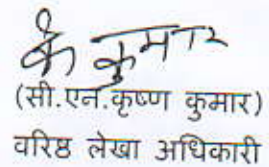 के कुमार
(सी.एन.कृष्ण कुमार)
वरिष्ठ लेखा अधिकारी